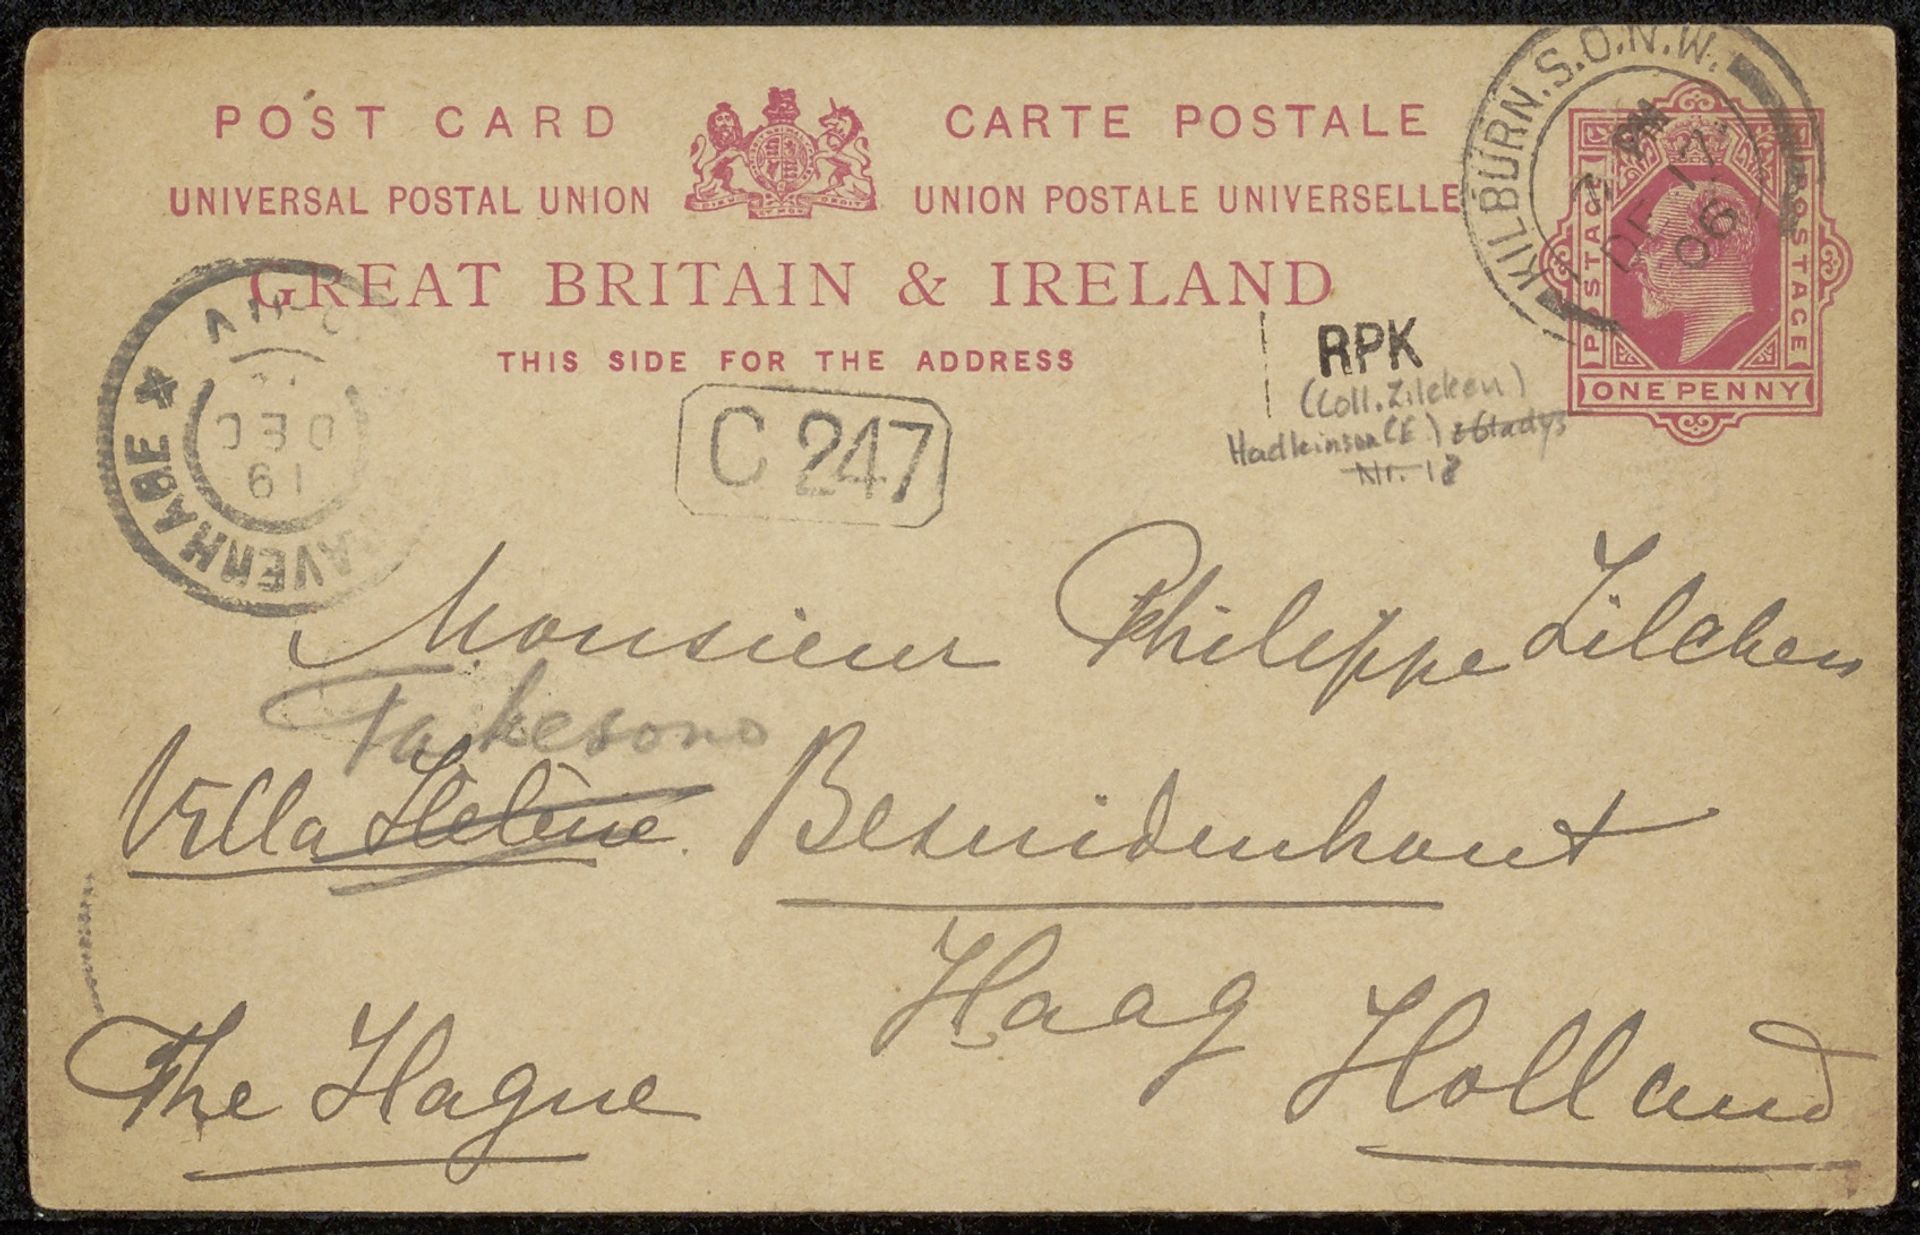 POST CARD CARTE POSTALE
UNIVERSAL POSTAL UNION UNION POSTALE UNIVERSELLE
DIEU ET MON DROIT
GREAT BRITAIN & IRELAND
THIS SIDE FOR THE ADDRESS
KILBURN.S.O.N.W.
PM
DE 11
06
POSTAGE POSTAGE
ONE PENNY
RPK
(Coll. Zilcken)
Hadkinson (E) Gladys
Nr. 18
C 247
DEC
Monsieur Philippe Zilcken
Takesono
Villa Hélène. Bezuidenhout
Haag
The Hague Holland